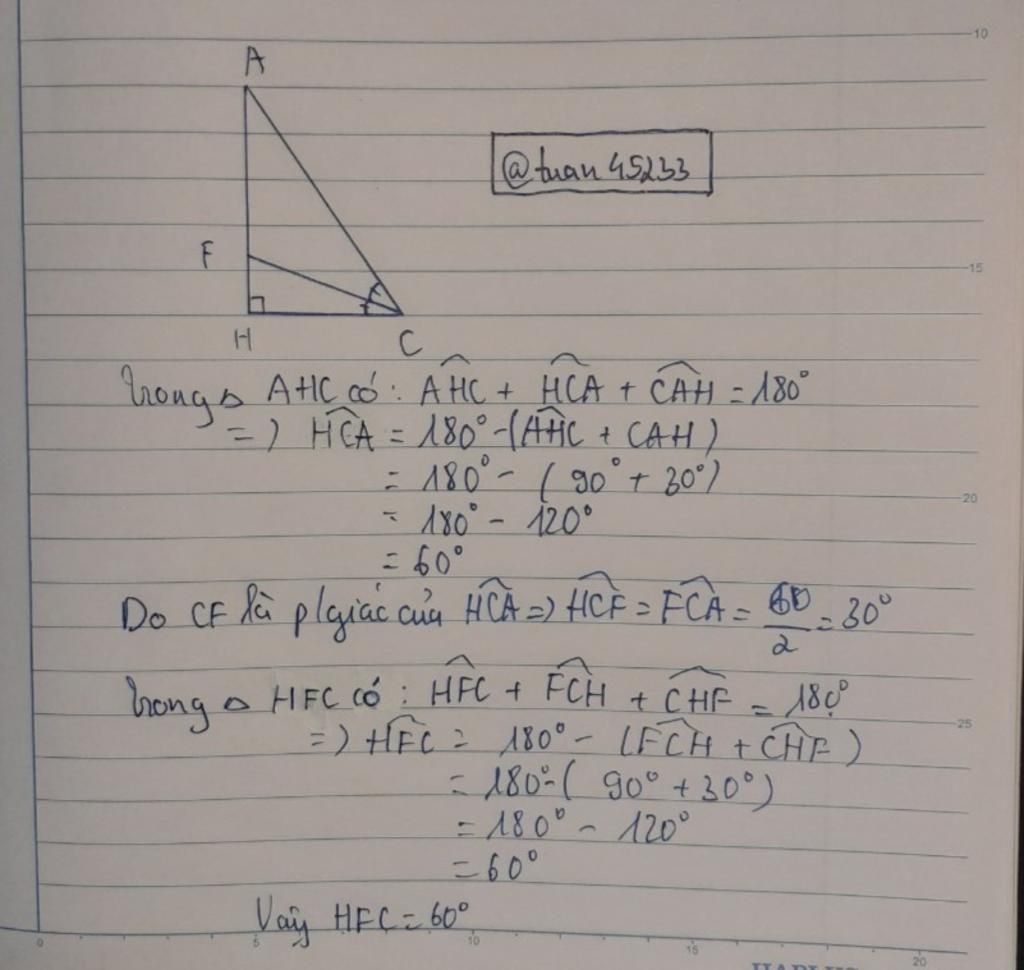 10
A
@tuan45233
F
15
H
C
Trong △ AHC có: AHC + HCA + CAH = 180°
=) HCA = 180° - (AHC + CAH)
= 180° - ( 90° + 30°)
20
= 180° - 120°
= 60°
Do CF là p/giác của HCA => HCF = FCA = 60/2 = 30°
Trong △ HFC có: HFC + FCH + CHF = 180°
25
=) HFC = 180° - (FCH + CHF )
= 180° - ( 90° + 30°)
= 180° - 120°
= 60°
Vậy HFC = 60°
0 5 10 15 20